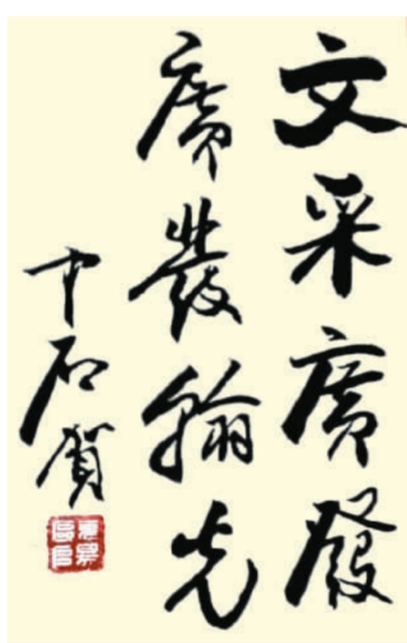 文采廣發
廣發翰光
中石賀